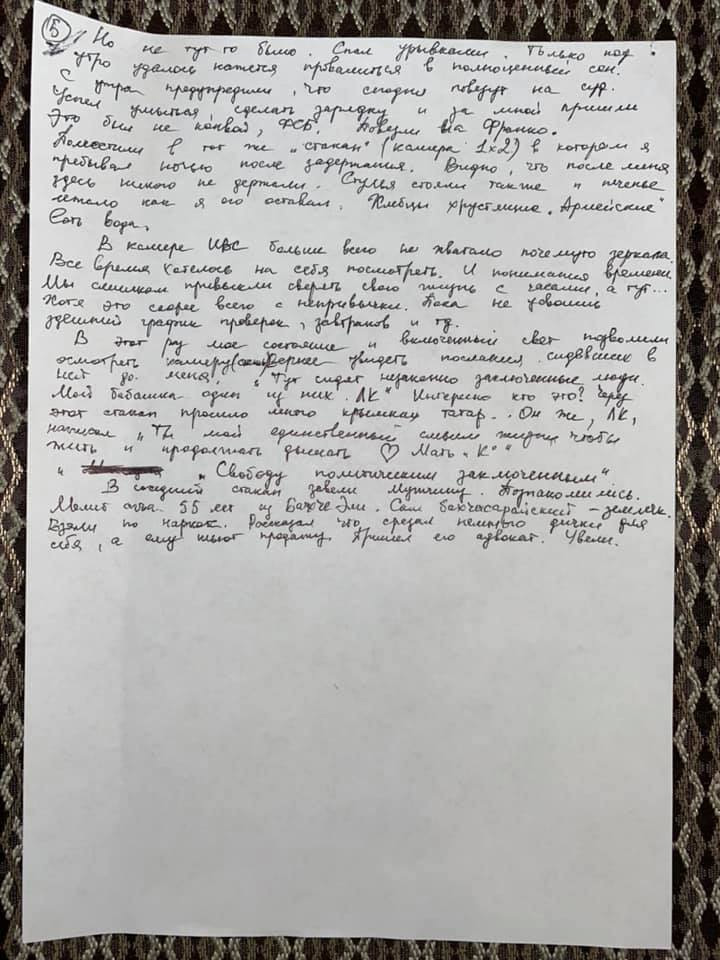 5 Но не тут то было. Спал урывками. Только под
утро удалось кажется провалиться в полноценный сон.
С утра предупредили, что сегодня повезут на суд.
Успел умыться, сделать зарядку и за мной пришли
Это был не конвой, ФСБ. Повезли на Франко.
Поместили в тот же „стакан" (камера 1х2) в котором я
пребывал ночью после задержания. Видно, что после меня
здесь никого не держали. Стулья стояли также и печенье
лежало как я его оставил. Хлебцы хрустящие „Армейские"
Есть вода.
В камере ИВС больше всего не хватало почему то зеркала.
Все время хотелось на себя посмотреть. И понимания времени.
Мы слишком привыкли сверять свою жизнь с часами, а тут...
Хотя это скорее всего с непривычки. Пока не усвоишь
здешний график проверок, завтраков и тд.
В этот раз мое состояние и включенный свет позволили
осмотреть камеру вернее увидеть послания сидевших в
ней до меня. „Тут сидят незаконно заключенные люди.
Мой бабашка один из них. ЛК" Интересно кто это? Через
этот стакан прошло много крымских татар. Он же, ЛК,
написал „Ты мой единственный смысл жизни чтобы
жить и продолжать дышать ♡ Мать „К""
„ „Свободу политическим заключенным"
В соседний стакан завели мужчину. Познакомились.
55 лет из Бахче-Эли. Сам бахчисарайский - земляк.
Взяли по наркоте. Рассказал что срезал немного дички для
себя, а ему шьют продажу. Пришел его адвокат. Увели.